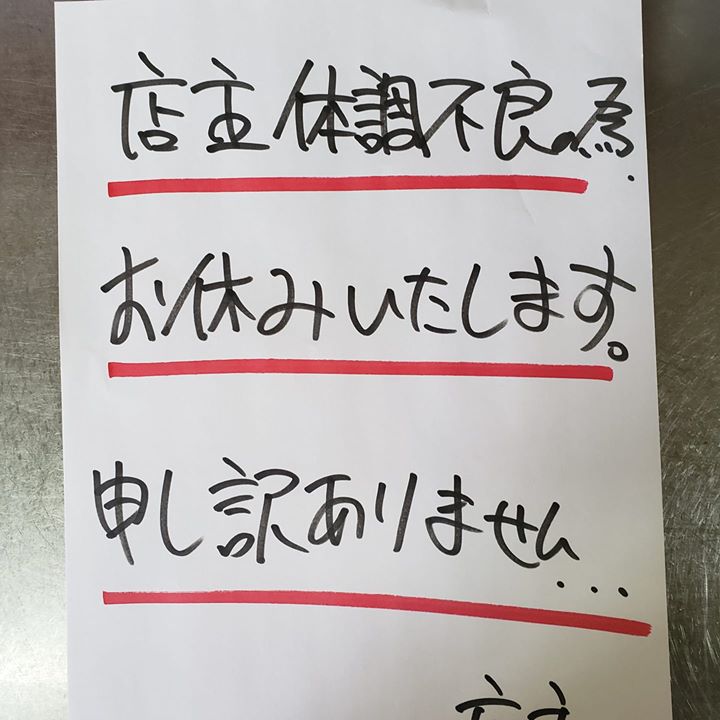 店主体調不良の為.
お休みいたします。
申し訳ありません...
店主